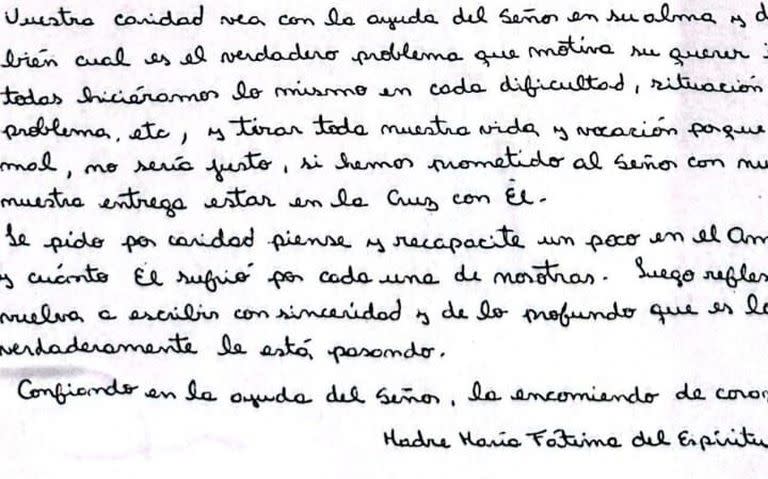 Vuestra caridad vea con la ayuda del Señor en su alma y d
bién cual es el verdadero problema que motiva su querer i
todas hiciéramos lo mismo en cada dificultad, situación
problema, etc, y tirar toda nuestra vida y vocación porque
mal, no sería justo, si hemos prometido al Señor con nu
nuestra entrega estar en la Cruz con Él.
Le pido por caridad piense y recapacite un poco en el Am
y cuánto Él sufrió por cada una de nosotras. Luego reflex
vuelva a escribir con sinceridad y de lo profundo que es lo
verdaderamente le está pasando.
Confiando en la ayuda del Señor, la encomiendo de coraz
Madre María Fátima del Espíritu